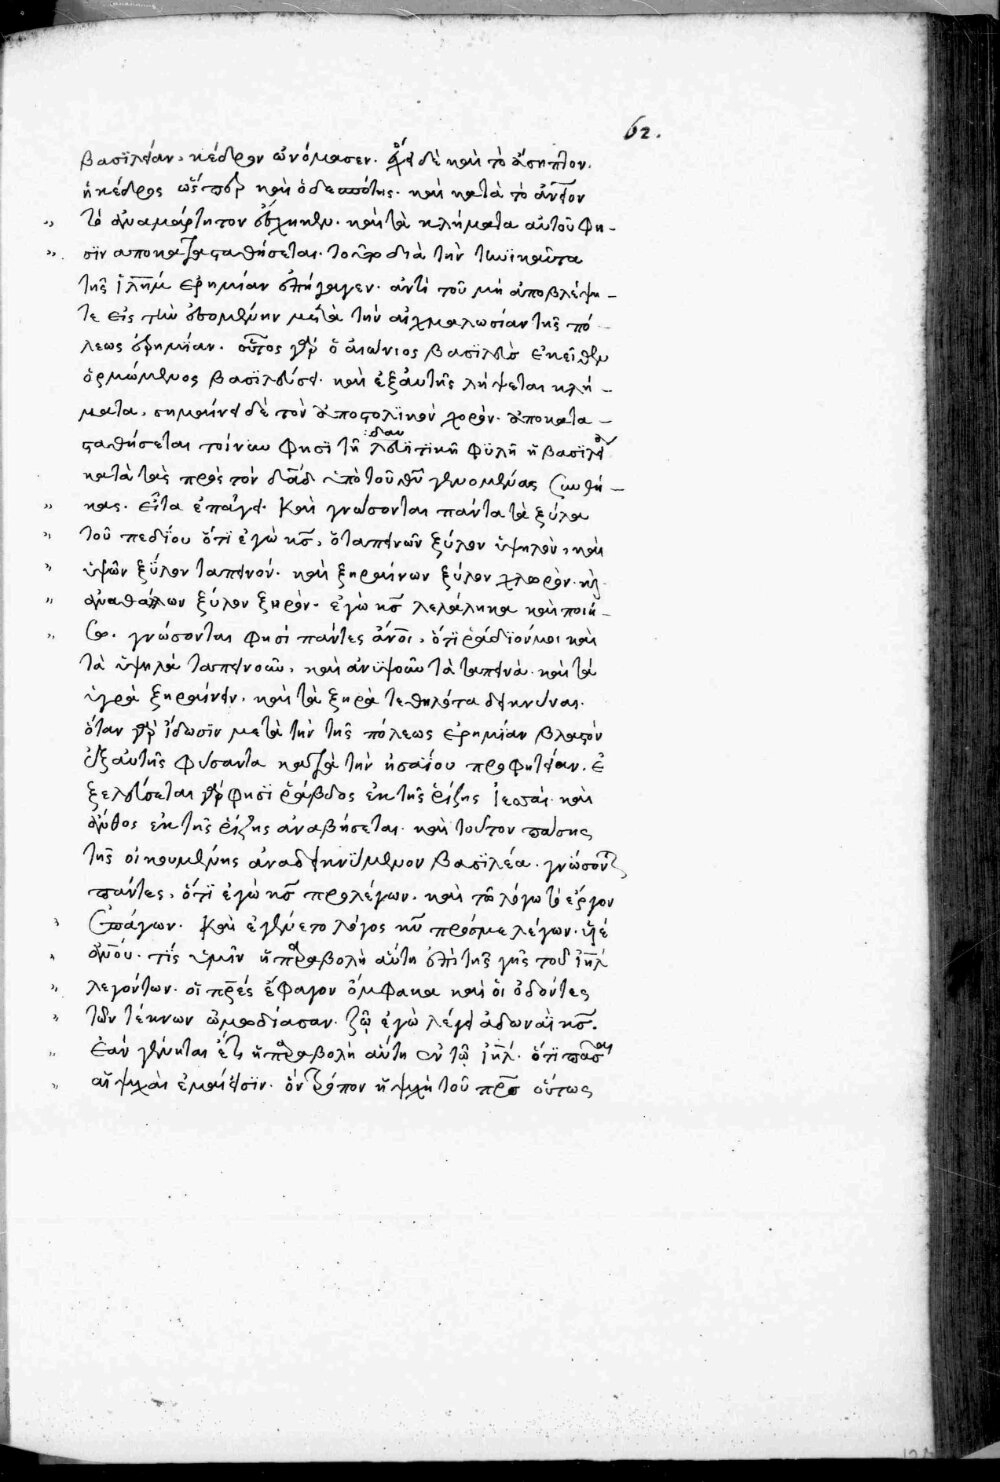 62.
βασϊλείαν, κέδρον ὠνόμασεν. ἔχει δὲ καὶ τὸ ἄσηπτον
ἡ κέδρος ὥσπερ καὶ ὁ δεσπότης. καὶ κατὰ τὸ ἄνθρωπον
τὸ ἀναμάρτητον καὶ τὰ κλήματα αὐτοῦ φη-
σϊν αποκατασταθήσεται. τὸ διὰ τὴν τηνϊκαῦτα
τῆς ἱλημ ἐρημίαν ἐπήγαγεν. ἀντὶ τοῦ μὴ ἀποβλέψη-
τε εἰς τὴν ἐσομένην μετὰ τὴν αἰχμαλωσίαν τῆς πό-
λεως ἐρημίαν. οὗτος γὰρ ὁ αἰώνιος βασϊλεὺς ἐκεῖθεν
ὁρμώμενος βασϊλεύσει. καὶ ἐξ αὐτῆς λήψεται κλή-
ματα. σημαίνει δὲ τὸν ἀποστολϊκὸν χορόν. ἀποκατα-
σταθήσεται τοίνυν φησὶ τῆ λευϊτικῆ φϋλῆ ἡ βασϊλεία
ϊουδαι
κατὰ τὰς πρὸς τὸν δαδ ὑπὸ τοῦ θυ γενομένας συνθή-
κας. εἶτα ἐπάγει. καὶ γνώσονται πάντα τὰ ξύλα
τοῦ πεδίου ὅτϊ ἐγὼ κς, ὁ ταπεινῶν ξύλον ὑψηλὸν, καὶ
ὑψῶν ξύλον ταπεινόν. καὶ ξηραίνων ξύλον χλωρὸν. κὶ
ἀναθάλλων ξύλον ξηρὸν. ἐγὼ κς λελάληκα καὶ ποιή-
σω. γνώσονται φησὶ πάντες ἄνοι, ὅτϊ ῥάδϊον μοι καὶ
τὰ ὑψηλὰ ταπεινοῦν, καὶ ανϋψοῦν τὰ ταπεινὰ. καὶ τὰ
ὑγρὰ ξηραίνειν. καὶ τὰ ξηρὰ τεθηλότα δεικνύναι.
ὅταν γὰρ ἴδωσϊν μετὰ τὴν τῆς πόλεως ἐρημίαν βλαστὸν
ἐξ αὐτῆς φύσαντα κατὰ τὴν ἡσαΐου προφητείαν. ἐ
ξελεύσεται γάρ φησϊ ῥάβδος ἐκ τῆς ῥίζης ἰεσσαί. καὶ
ἄνθος ἐκ τῆς ῥίζης ἀναβήσεται. καὶ τοῦτον πάσης
τῆς οἰκουμένης ἀναδεικνύμενον βασϊλέα. γνώσονται
πάντες, ὅτϊ ἐγὼ κς προλέγων. καὶ τῶ λόγω τὸ ἔργον
ἐπάγων. καὶ ἐγένετο λόγος κυ πρός με λέγων. υἱὲ
ανου. τίς ὑμῖν ἡ παραβολὴ αὕτη ἐπὶ τῆς γῆς τοῦ ιηλ
λεγόντων. οἱ πρες ἔφαγον ὄμφακα καὶ οἱ ὀδόντες
τῶν τέκνων ὠμωδίασαν. ζῶ ἐγὼ λέγει ἀδωναῒ κς.
Ἐὰν γένηται ἔτι ἡ παραβολὴ αὕτη ἐν τῶ ιηλ. ὅτϊ πᾶσαι
αἱ ψυχαὶ ἐμαί εἰσϊν. ὃν τρόπον ἡ ψυχὴ τοῦ πρς οὕτως